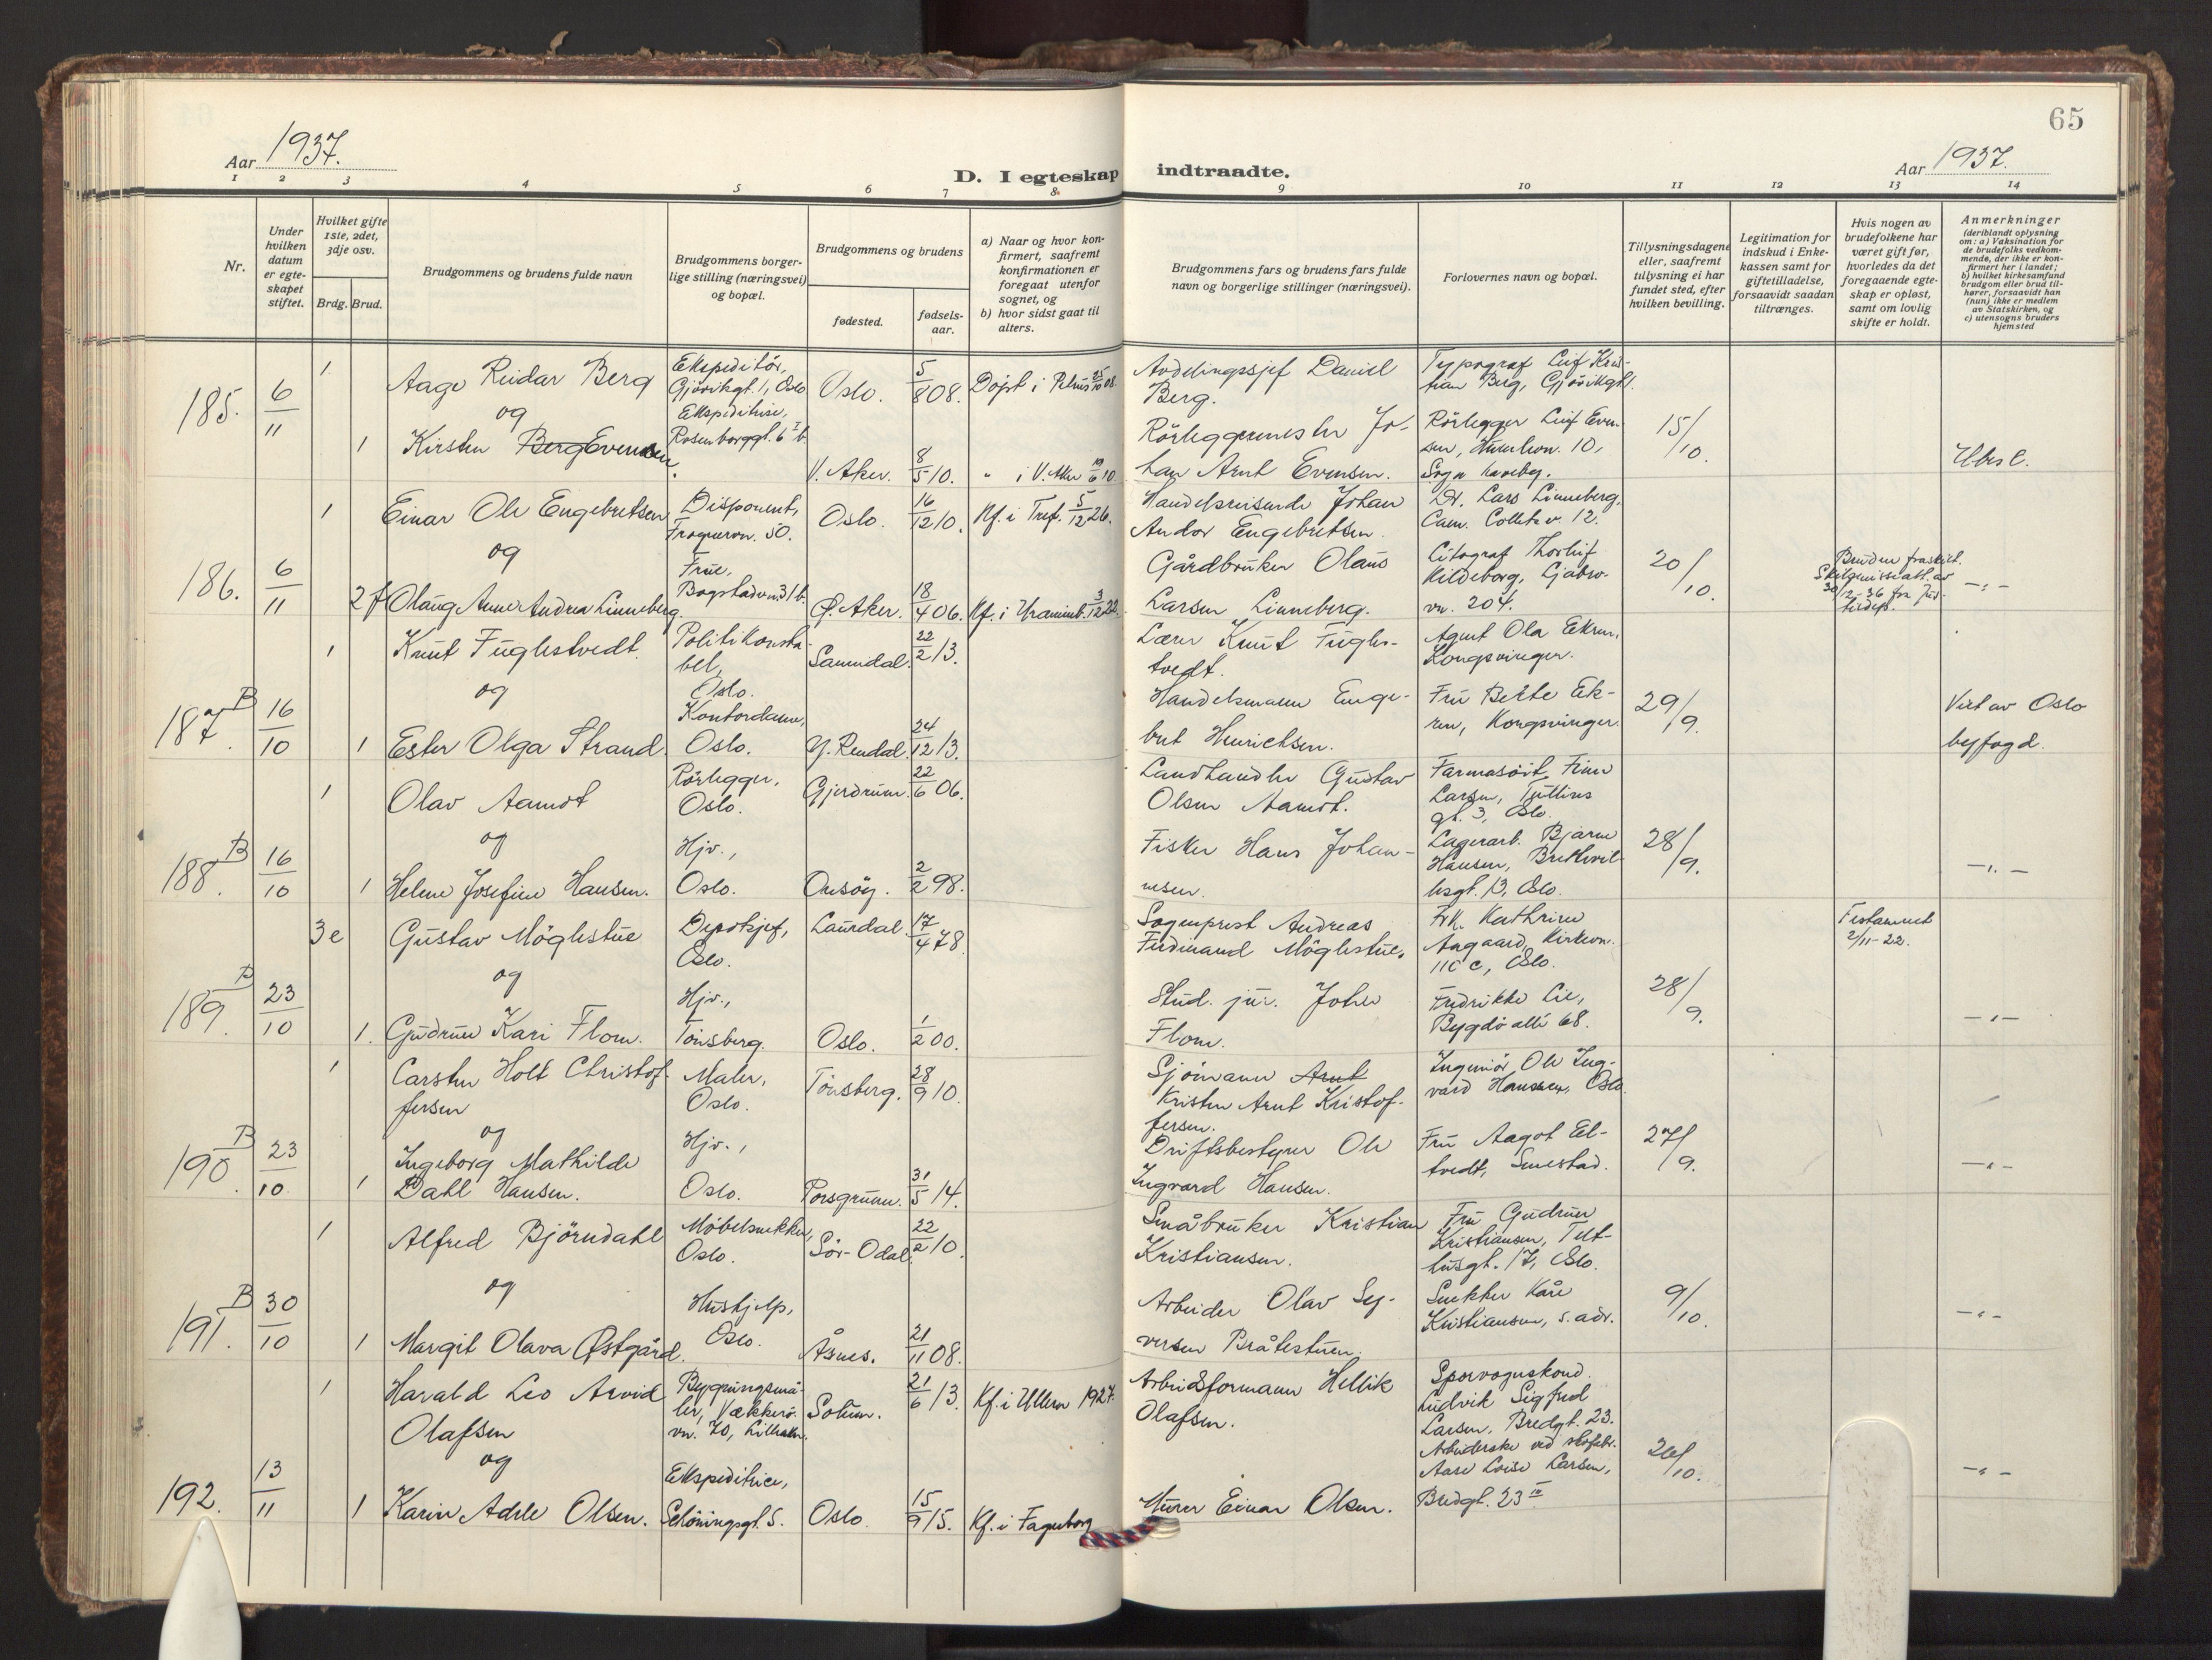 65
Aar 1937.
D. I egteskap indtraadte.
Aar 1937.
1 2 3 4 5 6 7 8 9 10 11 12 13 14
Nr.
Under hvilken datum er egteskapet stiftet.
Hvilket gifte 1ste, 2det, 3dje osv.
Brdg. Brud.
Brudgommens og brudens fulde navn
Brudgommens borgerlige stilling (næringsvei) og bopæl.
Brudgommens og brudens
fødested.
fødselsaar.
a) Naar og hvor konfirmert, saafremt konfirmationen er foregaat utenfor sognet, og
b) hvor sidst gaat til alters.
Brudgommens fars og brudens fars fulde navn og borgerlige stillinger (næringsvei).
Forlovernes navn og bopæl.
Tillysningsdagene eller, saafremt tillysning ei har fundet sted, efter hvilken bevilling.
Legitimation for indskud i Enkekassen samt for giftetilladelse, forsaavidt saadan tiltrænges.
Hvis nogen av brudefolkene har været gift før, hvorledes da det foregaaende egteskap er opløst, samt om lovlig skifte er holdt.
Anmerkninger
(deriblandt oplysning om: a) Vaksination for de brudefolks vedkommende, der ikke er konfirmert her i landet;
b) hvilket kirkesamfund brudgom eller brud tilhører, forsaavidt han (hun) ikke er medlem av Statskirken, og
c) utensogns bruders hjemsted
185. 6/11
1 Aage Reidar Berg
Ekspeditör, Gjövikgt. 1, Oslo
Oslo. 5/8 08. Döpt i Petrus 25/10 08.
Avdelingssjef Daniel Berg.
Typograf Leif Kristian Berg, Gjövikgt 1.
og
1 Kirsten Berg Evensen
Ekspeditrise, Rosenborggt. 6 b.
V. Aker. 8/5 10. " i V. Aker 19/6 10
Rörleggermester Johan Arnt Evensen.
Rörlegger Leif Evensen, 10, Sogn haveby.
15/10.
186. 6/11
1 Einar Ole Engebretsen
Disponent, Frognervn. 50.
Oslo. 16/12 10. Kf. i Tref. 5/12 26.
Handelsreisende Johan Andor Engebretsen.
Dr. Lars Linneberg, Cam. Colletsv. 12.
og
2 f Olaug Anne Andrea Linneberg.
Frue, Bogstadvn. 31 b.
Ø. Aker. 18/4 06. Kf. i Uranienb. 3/12 22.
Gårdbruker Olaus Larsen Linneberg.
Litograf Thorleif Kildeborg, Ljabrovn. 204.
20/10.
Bruden fraskilt. Skilsmisseatt. av 30/12-36 fra jus. tisdep.
- " -
187. B 16/10
1 Knut Fuglestvedt
Politikonstabel, Oslo.
Samndal. 22/2 13.
Lærer Knut Fuglestvedt.
Agent Ola Ekren, Kongsvinger.
og
1 Ester Olga Strand
Kontordame, Oslo.
Y. Rendal. 24/12 13.
Handelsmann Engebret Henrichsen.
Fru Berte Ekren, Kongsvinger.
29/9.
Viet av Oslo byfogd.
188. B 16/10
1 Olav Aamot
Rörlegger, Oslo.
Gjerdrum. 22/6 06.
Landhandler Gustav Olsen Aamot.
Farmasöit Finn Larsen, Tullins gt. 3, Oslo.
og
1 Helene Josefine Hansen.
Hjv., Oslo.
Onsöy. 2/2 98.
Fisker Hans Johannesen.
Lagerarb. Bjarne Hansen, gt. 13, Oslo.
28/9.
- " -
189. B 23/10
3 e Gustav Möglestue
Depotsjef, Oslo.
Laurdal. 17/4 78
Sogneprest Andreas Ferdinand Möglestue.
Frk. Kathrine Aagaard, Kirkevn. 110 c, Oslo.
2/11-22.
og
1. Gudrun Kari Flom.
Hjv., Tönsberg.
Oslo. 1/2 00.
Stud. jur. Johan Flom.
Fredrikke Lie, Bygdö allé 68.
28/9.
- " -
190. B 23/10
1 Carsten Holt Christoffersen
Maler, Oslo.
Tönsberg. 28/9 10.
Sjömann Arnt Kristen Arnt Kristoffersen.
Ingeniör Ole Ingvard Hansen, Oslo.
og
1 Ingeborg Mathilde Dahl Hansen.
Hjv., Oslo.
Porsgrunn. 31/5 14.
Driftsbestyrer Ole Ingvard Hansen.
Fru Aagot Eltvedt, Smestad.
27/9.
- " -
191. B 30/10
1 Alfred Björndahl
Möbelsnekker, Oslo.
Sör-Odal. 22/2 10.
Småbruker Kristian Kristiansen.
Fru Gudrun Kristiansen, Telthusgt. 17, Oslo.
og
1 Margit Olava Østgård.
Hushjelp, Oslo.
Åsnes. 21/11 08.
Arbeider Olav Syversen Bråtestuen.
Snekker Kåre Kristiansen, s. adr.
9/10.
- " -
192. 13/11
1 Harald Leo Arvid Olafsen
Bygningsmaler, Vækkerövn. 70, Lilleaker.
Solum. 21/6 13. Kf. i Ullern 1927.
Arbeidsformann Hellik Olafsen.
Sporvognskond. Ludvik Sigfred Larsen, Bredgt. 23.
og
1 Karin Adele Olsen.
Ekspeditrice, Schöningsgt. 5.
Oslo. 15/9 15. Kf. i Fagerborg
Murer Einar Olsen.
Arbeiderske ved skofabr. Aase Loise Larsen, Bredgt. 23 IV
26/10.
- " -